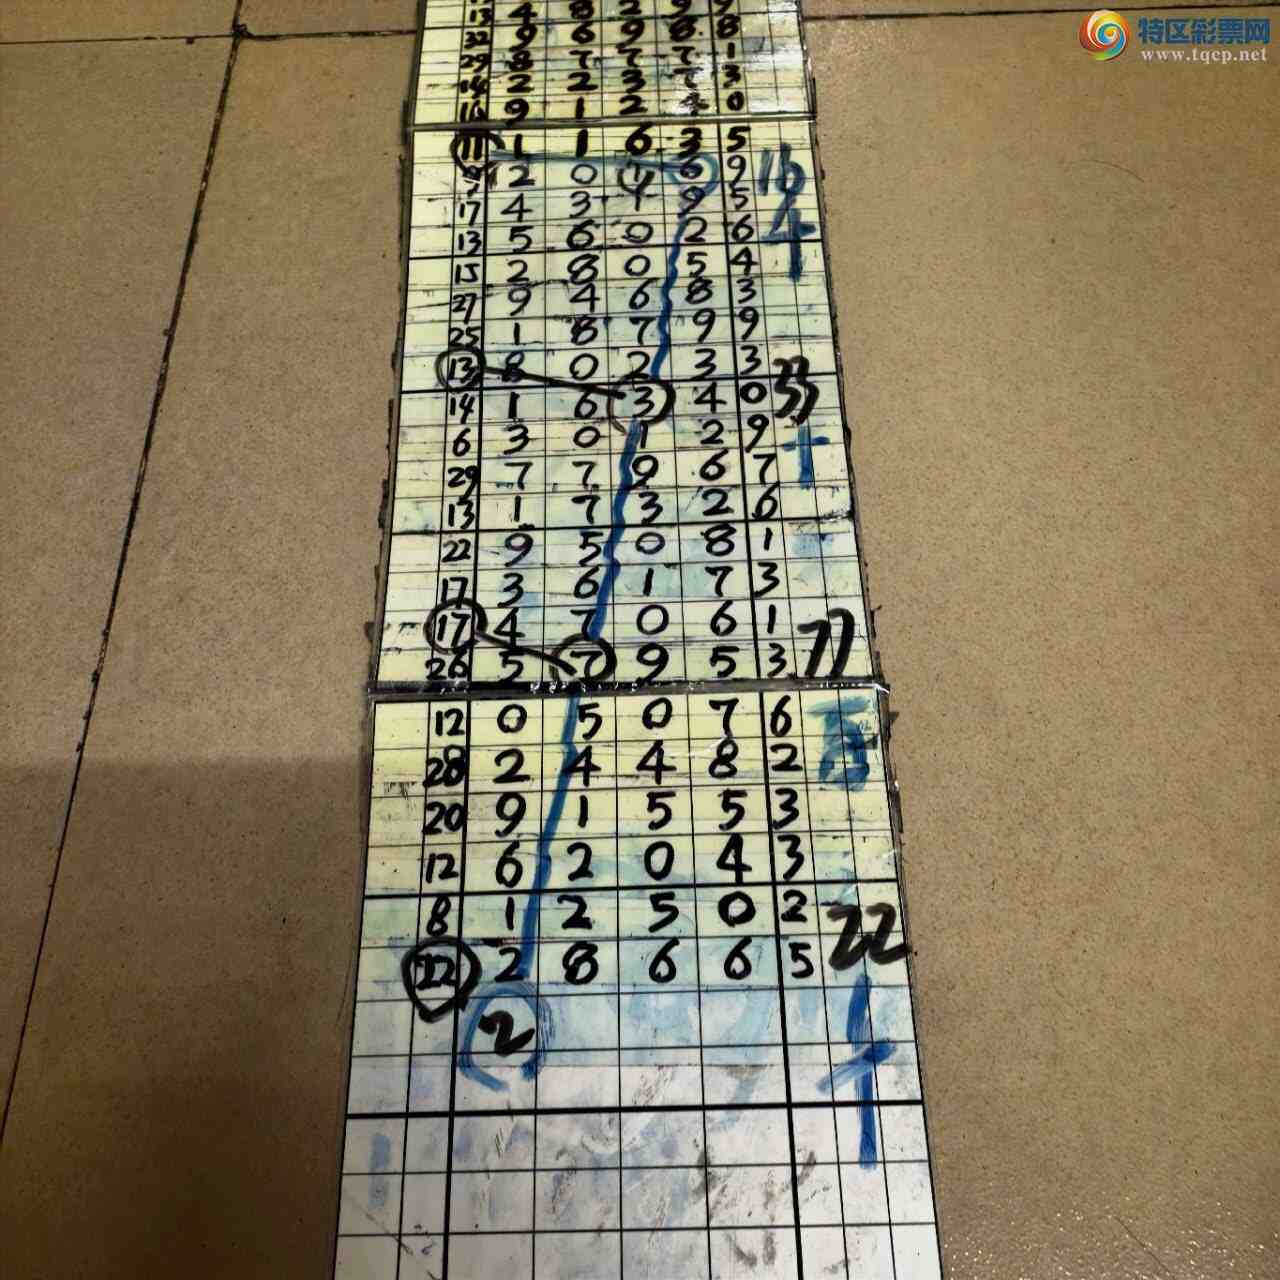 特区彩票网
www.tqcp.net
13 4 8 2 9 9
32 9 6 9 8 8
29 8 7 7 7 1
14 2 2 3 7 3
16 9 1 2 4 0
11 1 1 6 3 5
2 0 1 6 9 16
17 4 3 1 9 5 千
13 5 6 0 2 6
15 2 8 0 5 4
27 9 4 6 8 3
25 1 8 7 9 9
13 8 0 2 3 3
14 1 6 3 4 0 33
6 3 0 1 2 9 十
29 7 7 9 6 7
13 1 7 3 2 6
22 9 5 0 8 1
17 3 6 1 7 3
17 4 7 0 6 1
26 5 7 9 5 3 77
12 0 5 0 7 6 百
28 2 4 4 8 2
20 9 1 5 5 3
12 6 2 0 4 3
8 1 2 5 0 2 22
22 2 8 6 6 5
2 千